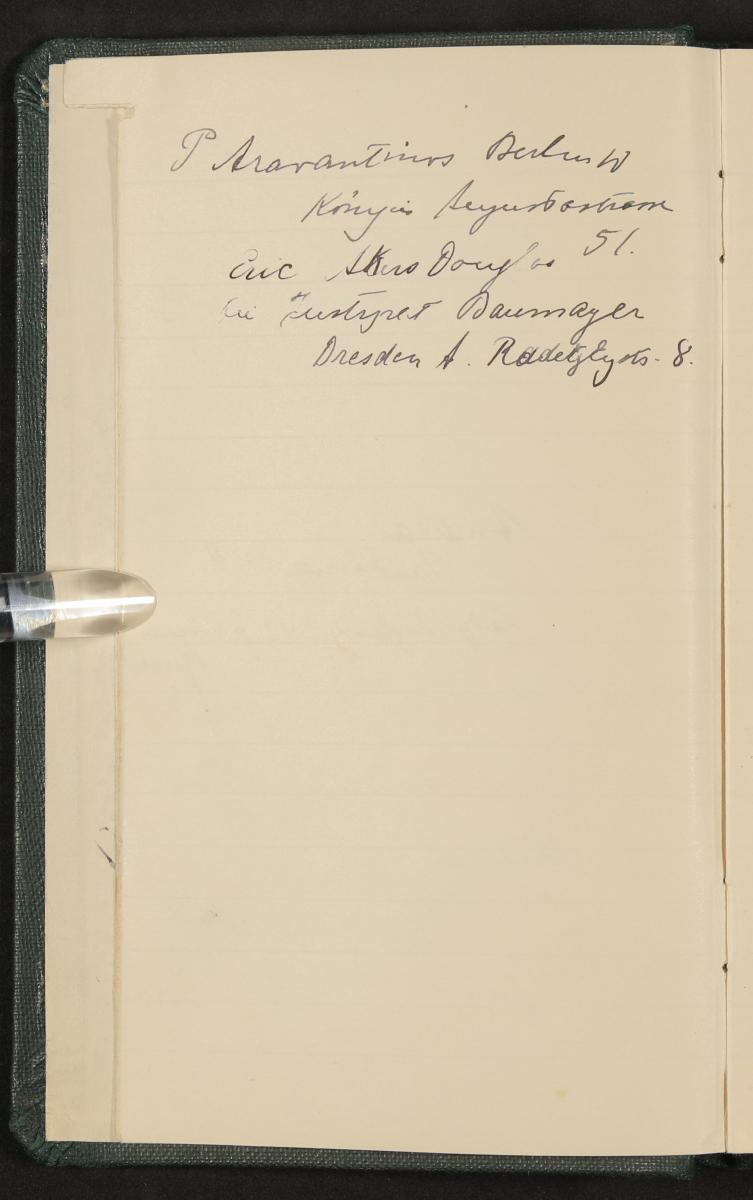 P Aravantinos Berlin W
Königin Augustastrasse
51.
Eric Akers Douglas
bei Justizrat Baumayer
Dresden A. Radetzkystr. 8.